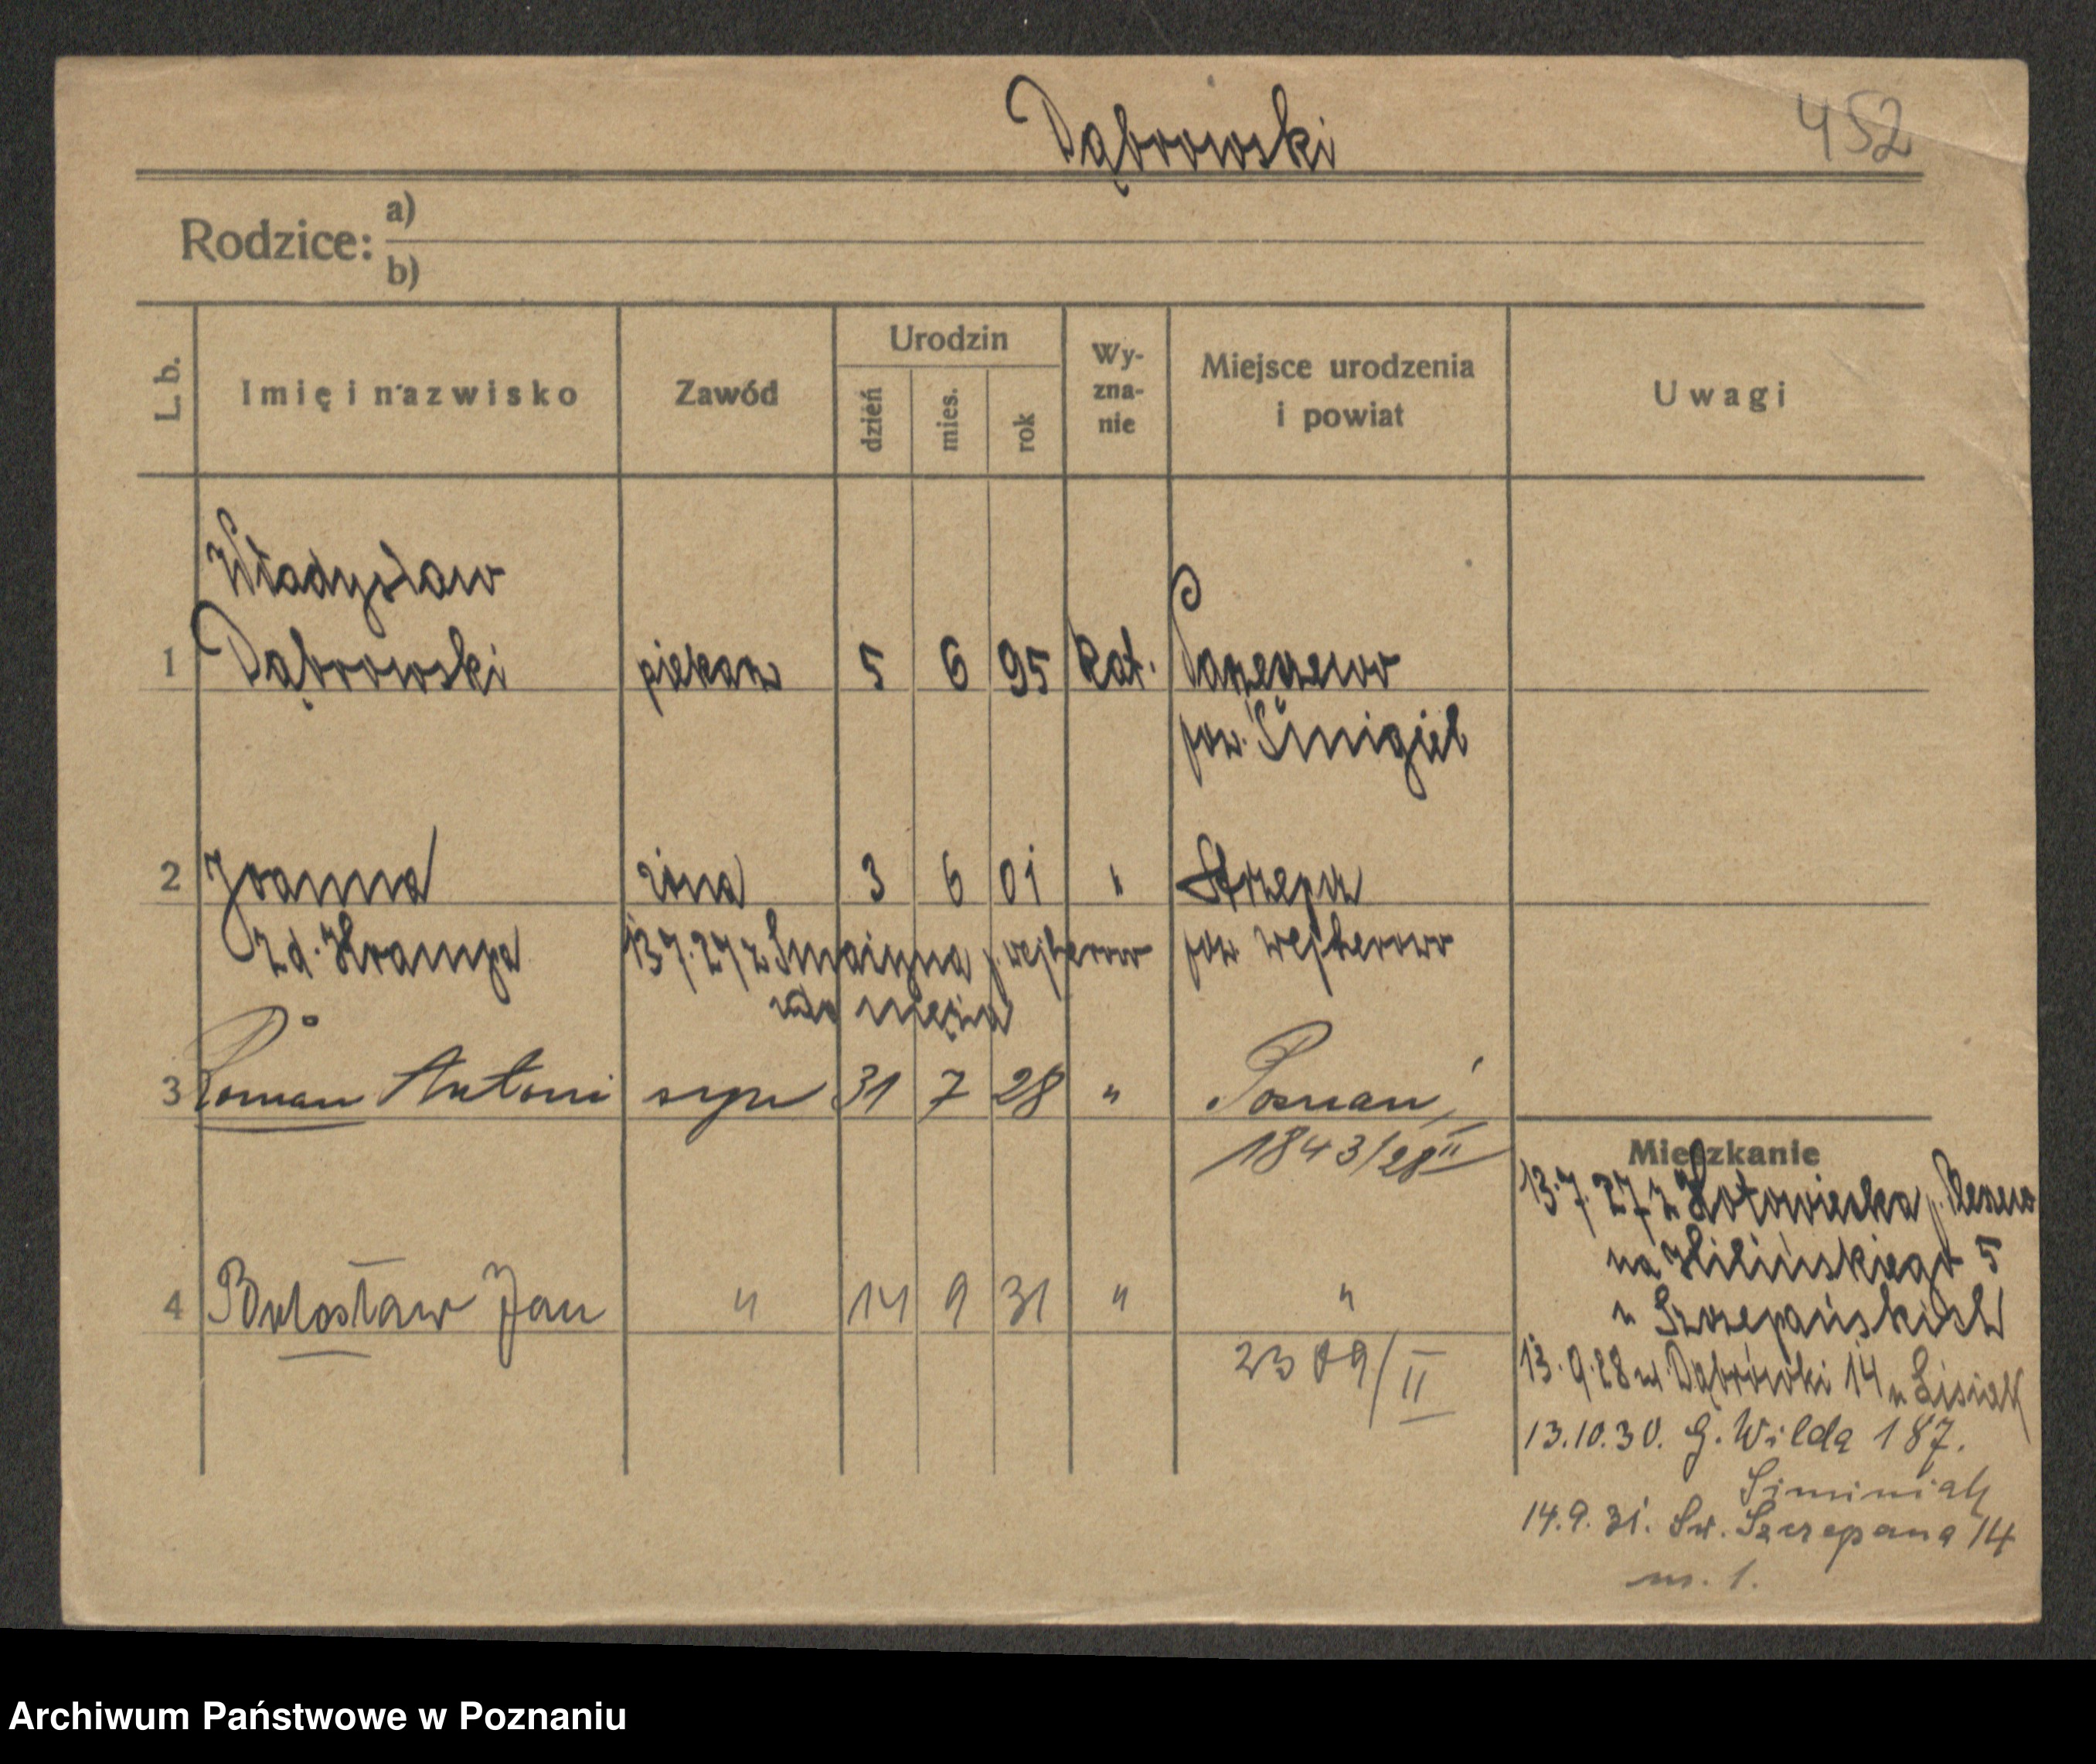 Dąbrowski
452
Rodzice:
a)
b)
L. b.
Imię i nazwisko
Zawód
Urodzin
dzień
mies.
rok
Wy-
zna-
nie
Miejsce urodzenia
i powiat
Uwagi
Władysław
1 Dąbrowski piekarz 5 6 95 kat.
pow. Śmigiel
2 Joanna żona 3 6 01 " Strzepcz
zd. 13.7.27 z p. wejherowo pow wejherowo
do męża
3 Roman Antoni syn 31 7 28 " Poznań,
1843/28 II
Mieszkanie
13.7.27 z
na Kilińskiego 5
u Szczepańskich
4 Bolosław Jan " 14 9 31 " "
2309/II
13.9.28 ul Dąbrówki 14 u Lisiak
13.10.30. G. Wilda 187.
Siminiak
14.9.31. Św. Szczepana 14
m. 1.
Archiwum Państwowe w Poznaniu